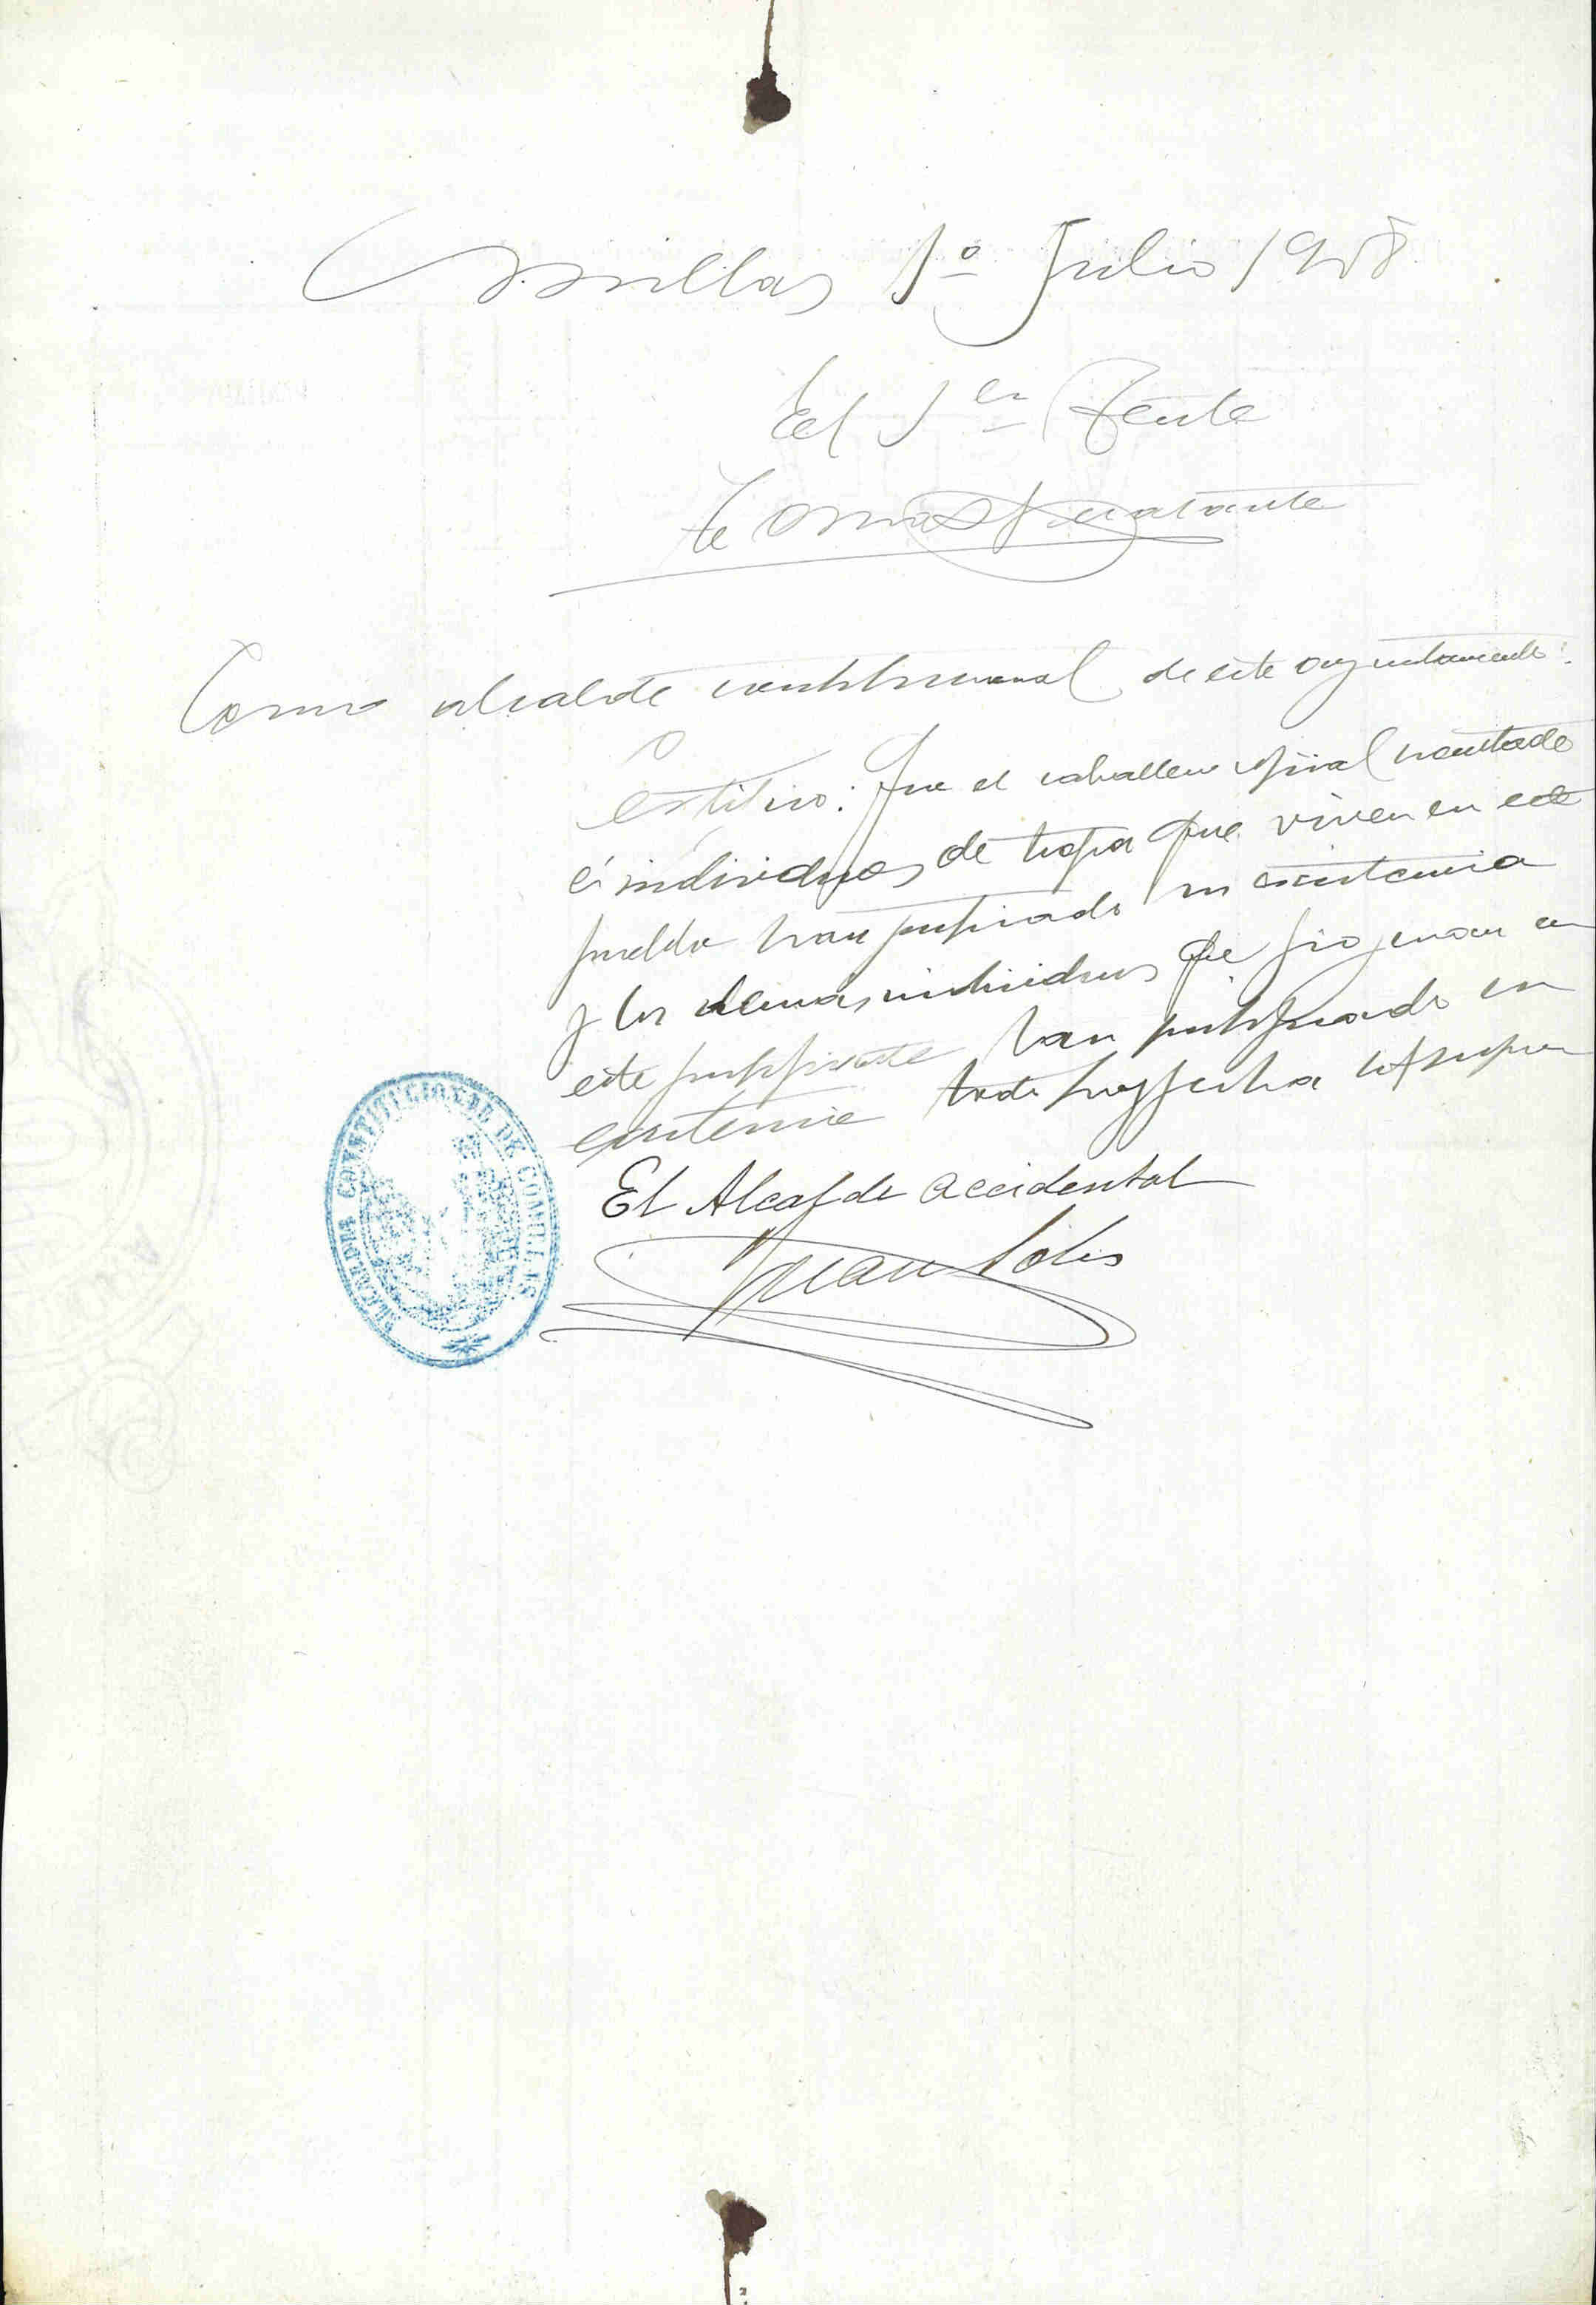 Comillas 1º Julio 1908
El 1er Tente
Tomas
Como alcalde constitucional de este ayuntamiento.
Certifico: Que el caballero oficial
é individuos de tropa que viven en este
pueblo han justificado su existencia
y los demas individuos que figuran en
este justificante han justificado su
existencia
El Alcalde accidental
Juan Solis
ALCALDIA CONSTITUCIONAL DE COMILLAS